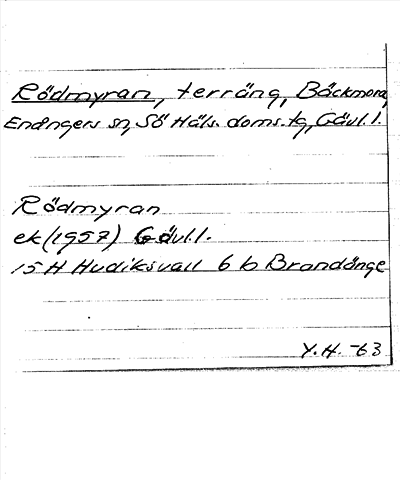 Rödmyran, terräng, Bäckmora,
Enångers sn, Sö Häls. doms. tg, Gävl. l.
Rödmyran
ek (1957) Gävl. l.
15 H Hudiksvall 6 b Brandänge
Y. H. -63